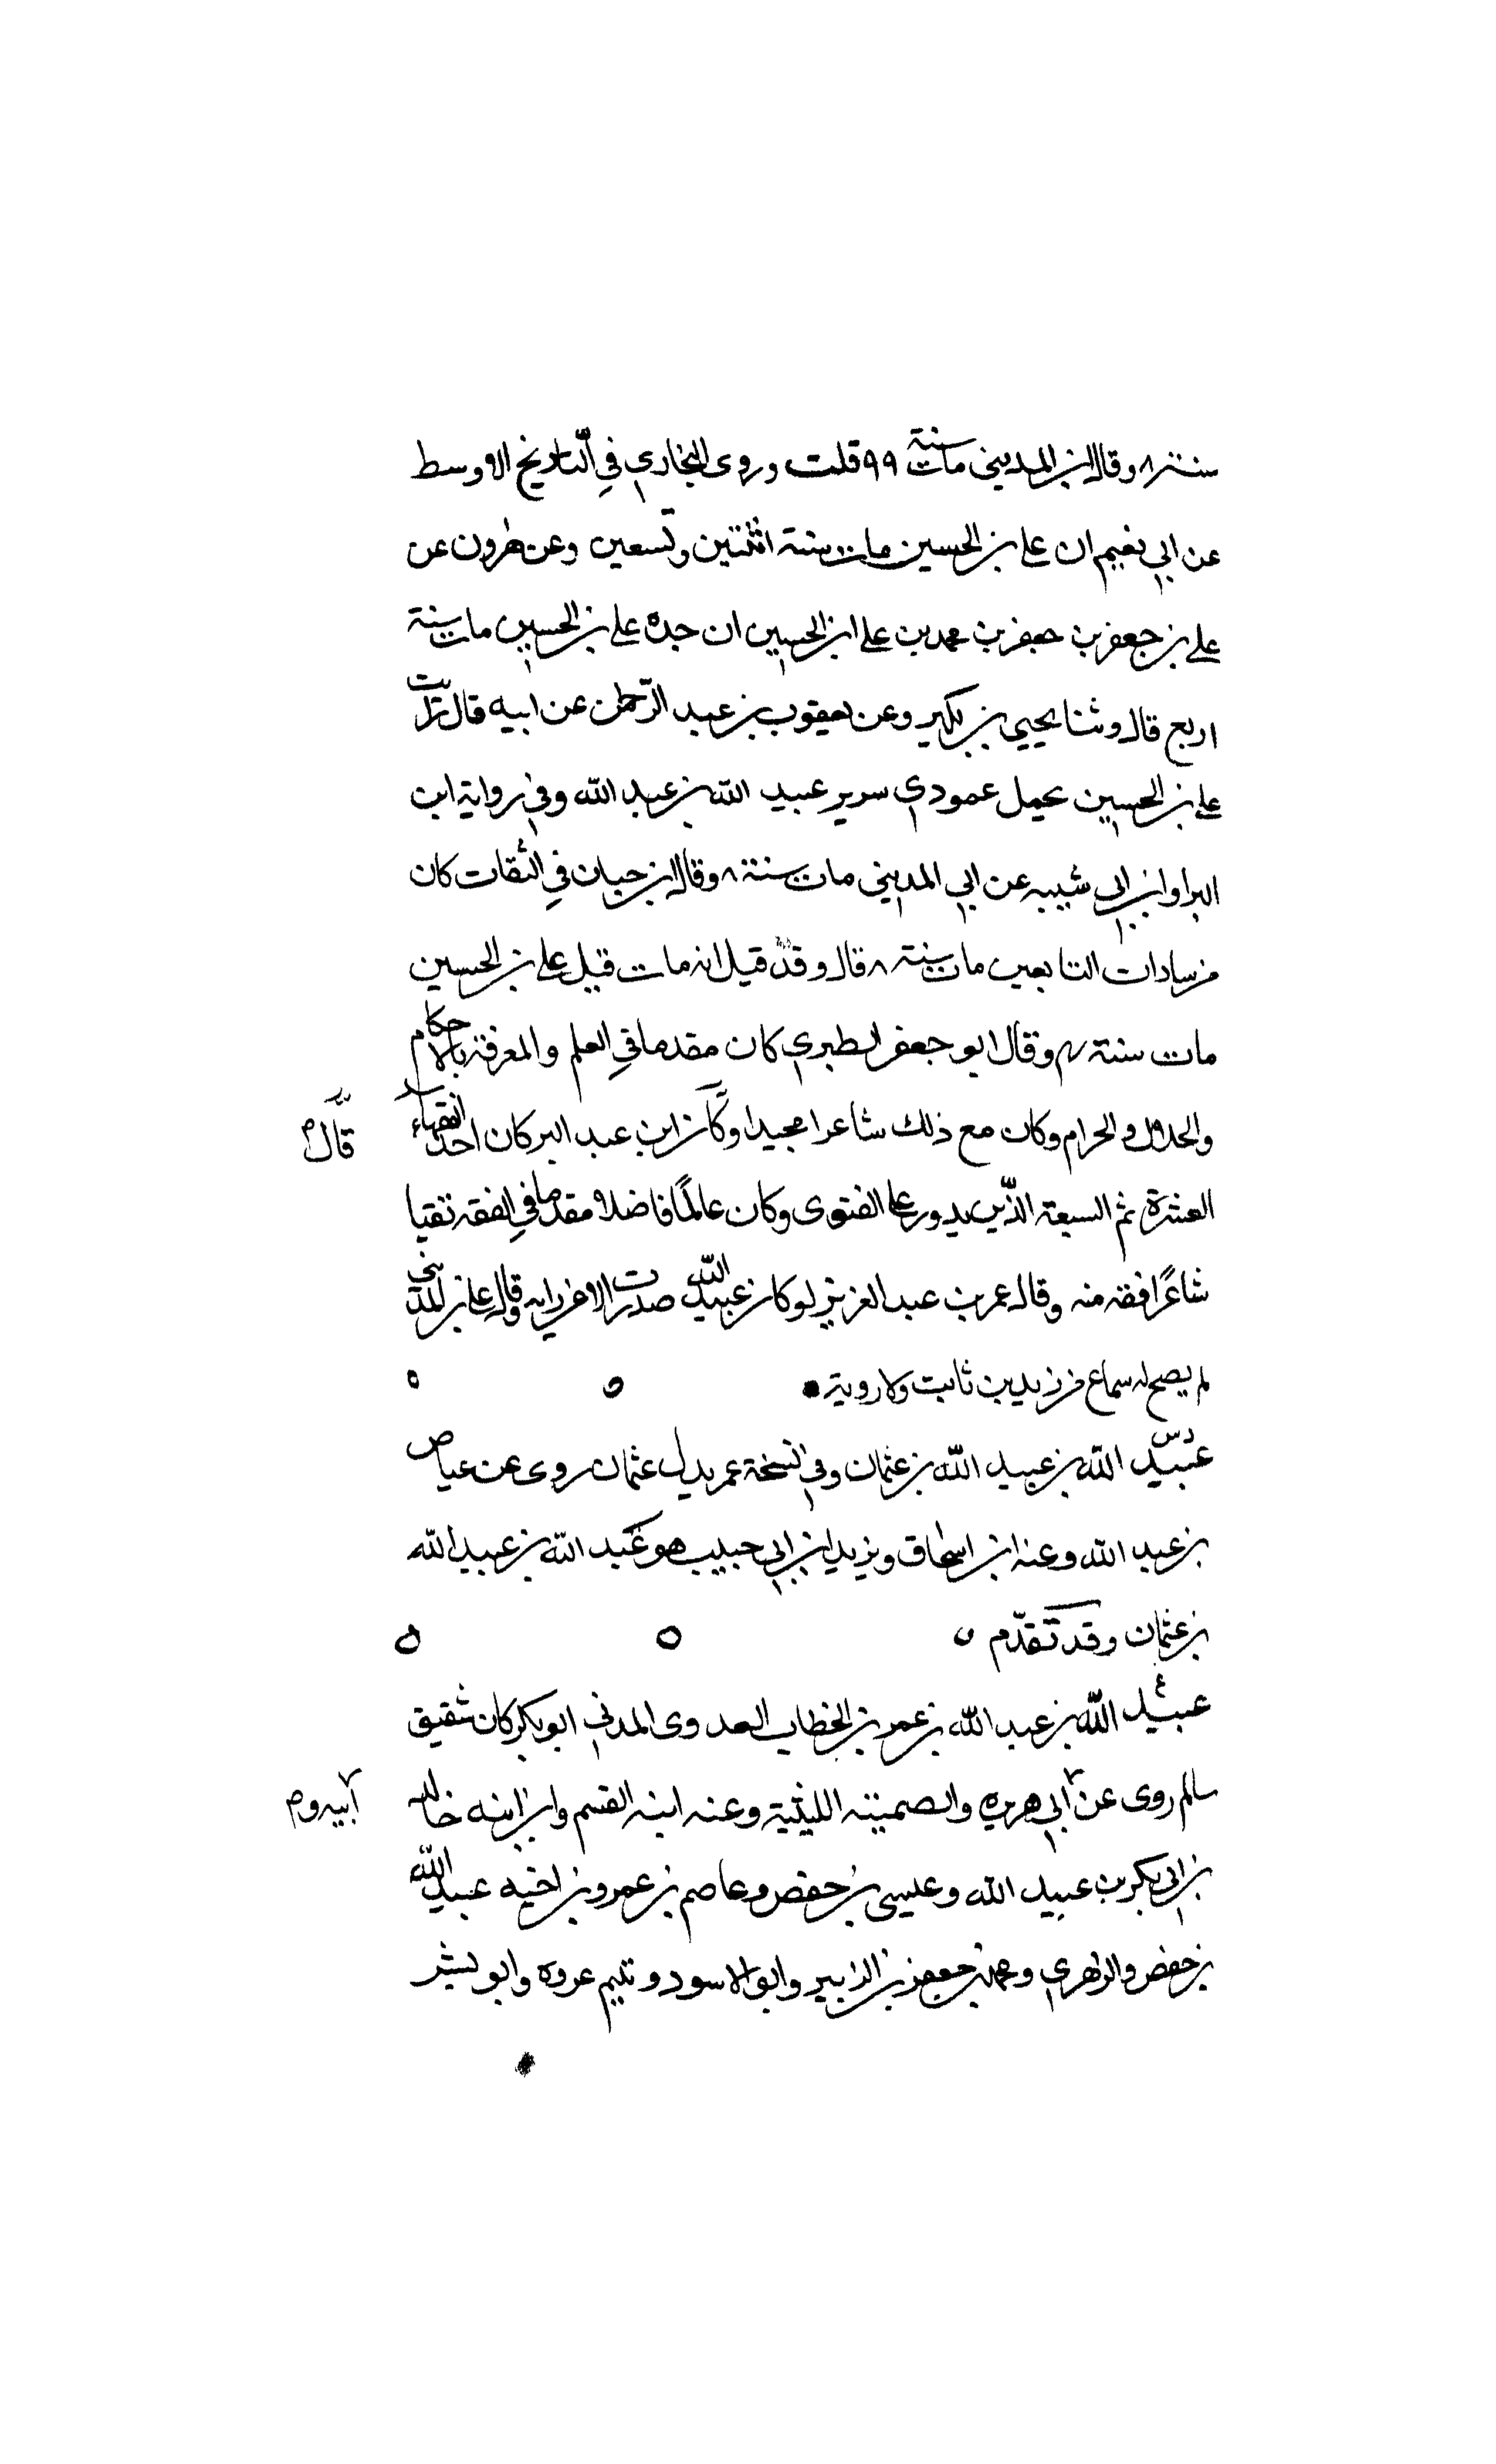 سنة ٨ وقال ابن المديني مات سنة ٩٩ قلت وروى البخاري في التاريخ الاوسط
عن ابي نعيم ان علي بن الحسين مات سنة اثنتين وتسعين وعن هرون عن
علي بن جعفر بن جعفر بن محمد بن علي ابن الحسين ان جده علي بن الحسين مات سنة
اربع قال وثنا يحيى بن بكير وعن يعقوب بن عبد الرحمن عن ابيه قال رايت
علي بن الحسين يحمل عمودي سرير عبيد الله بن عبد الله وفي رواية ابن
البرا وابن ابي شيبه عن ابي المديني مات سنة ٨ وقال ابن حبان في الثقات كان
من سادات التابعين مات سنة ٨ قال وقد قيل انه مات قبل علي بن الحسين
مات سنة وقال ابو جعفر الطبري كان مقدما في العلم والمعرفة بالاحكام
والحلال والحرام وكان مع ذلك شاعرا مجيدا وكان ابن عبد البر كان احد الفقهاء
قال م
العشرة ثم السبعة الذين يدور علي الفتوى وكان عالما فاضلا مقدما في الفقه تقيا
شاعرا افقه منه وقال عمر بن عبد العزيز لو كان عبيد الله صدرت الا عن رايه وقال علي بن المديني
لم يصح له سماع من زيد بن ثابت ولا روية
عبيد الله بن عبيد الله بن عثمان وفي النسخة عمر بدل عثمان روى عن عياض
بن عبد الله وعنه ابن اسحاق ويزيد ابن ابي حبيب هو عبد الله بن عبيد الله
بن عثمان وقد تقدم
عبيد الله بن عبد الله بن عمر بن الخطاب العدوى المدني ابو بكر كان شقيق
سالم روى عن ابي هريره والصميتة الليثية وعنه ابنه القسم وابن ابنه خالد
ابيه و م
بن ابي بكر بن عبيد الله وعيسى بن حفص وعاصم بن عمر وبن اخيه عبيد الله
بن حفص والزهري ومحمد بن جعفر بن الزبير وابو الاسود يتيم عروه وابو بشر